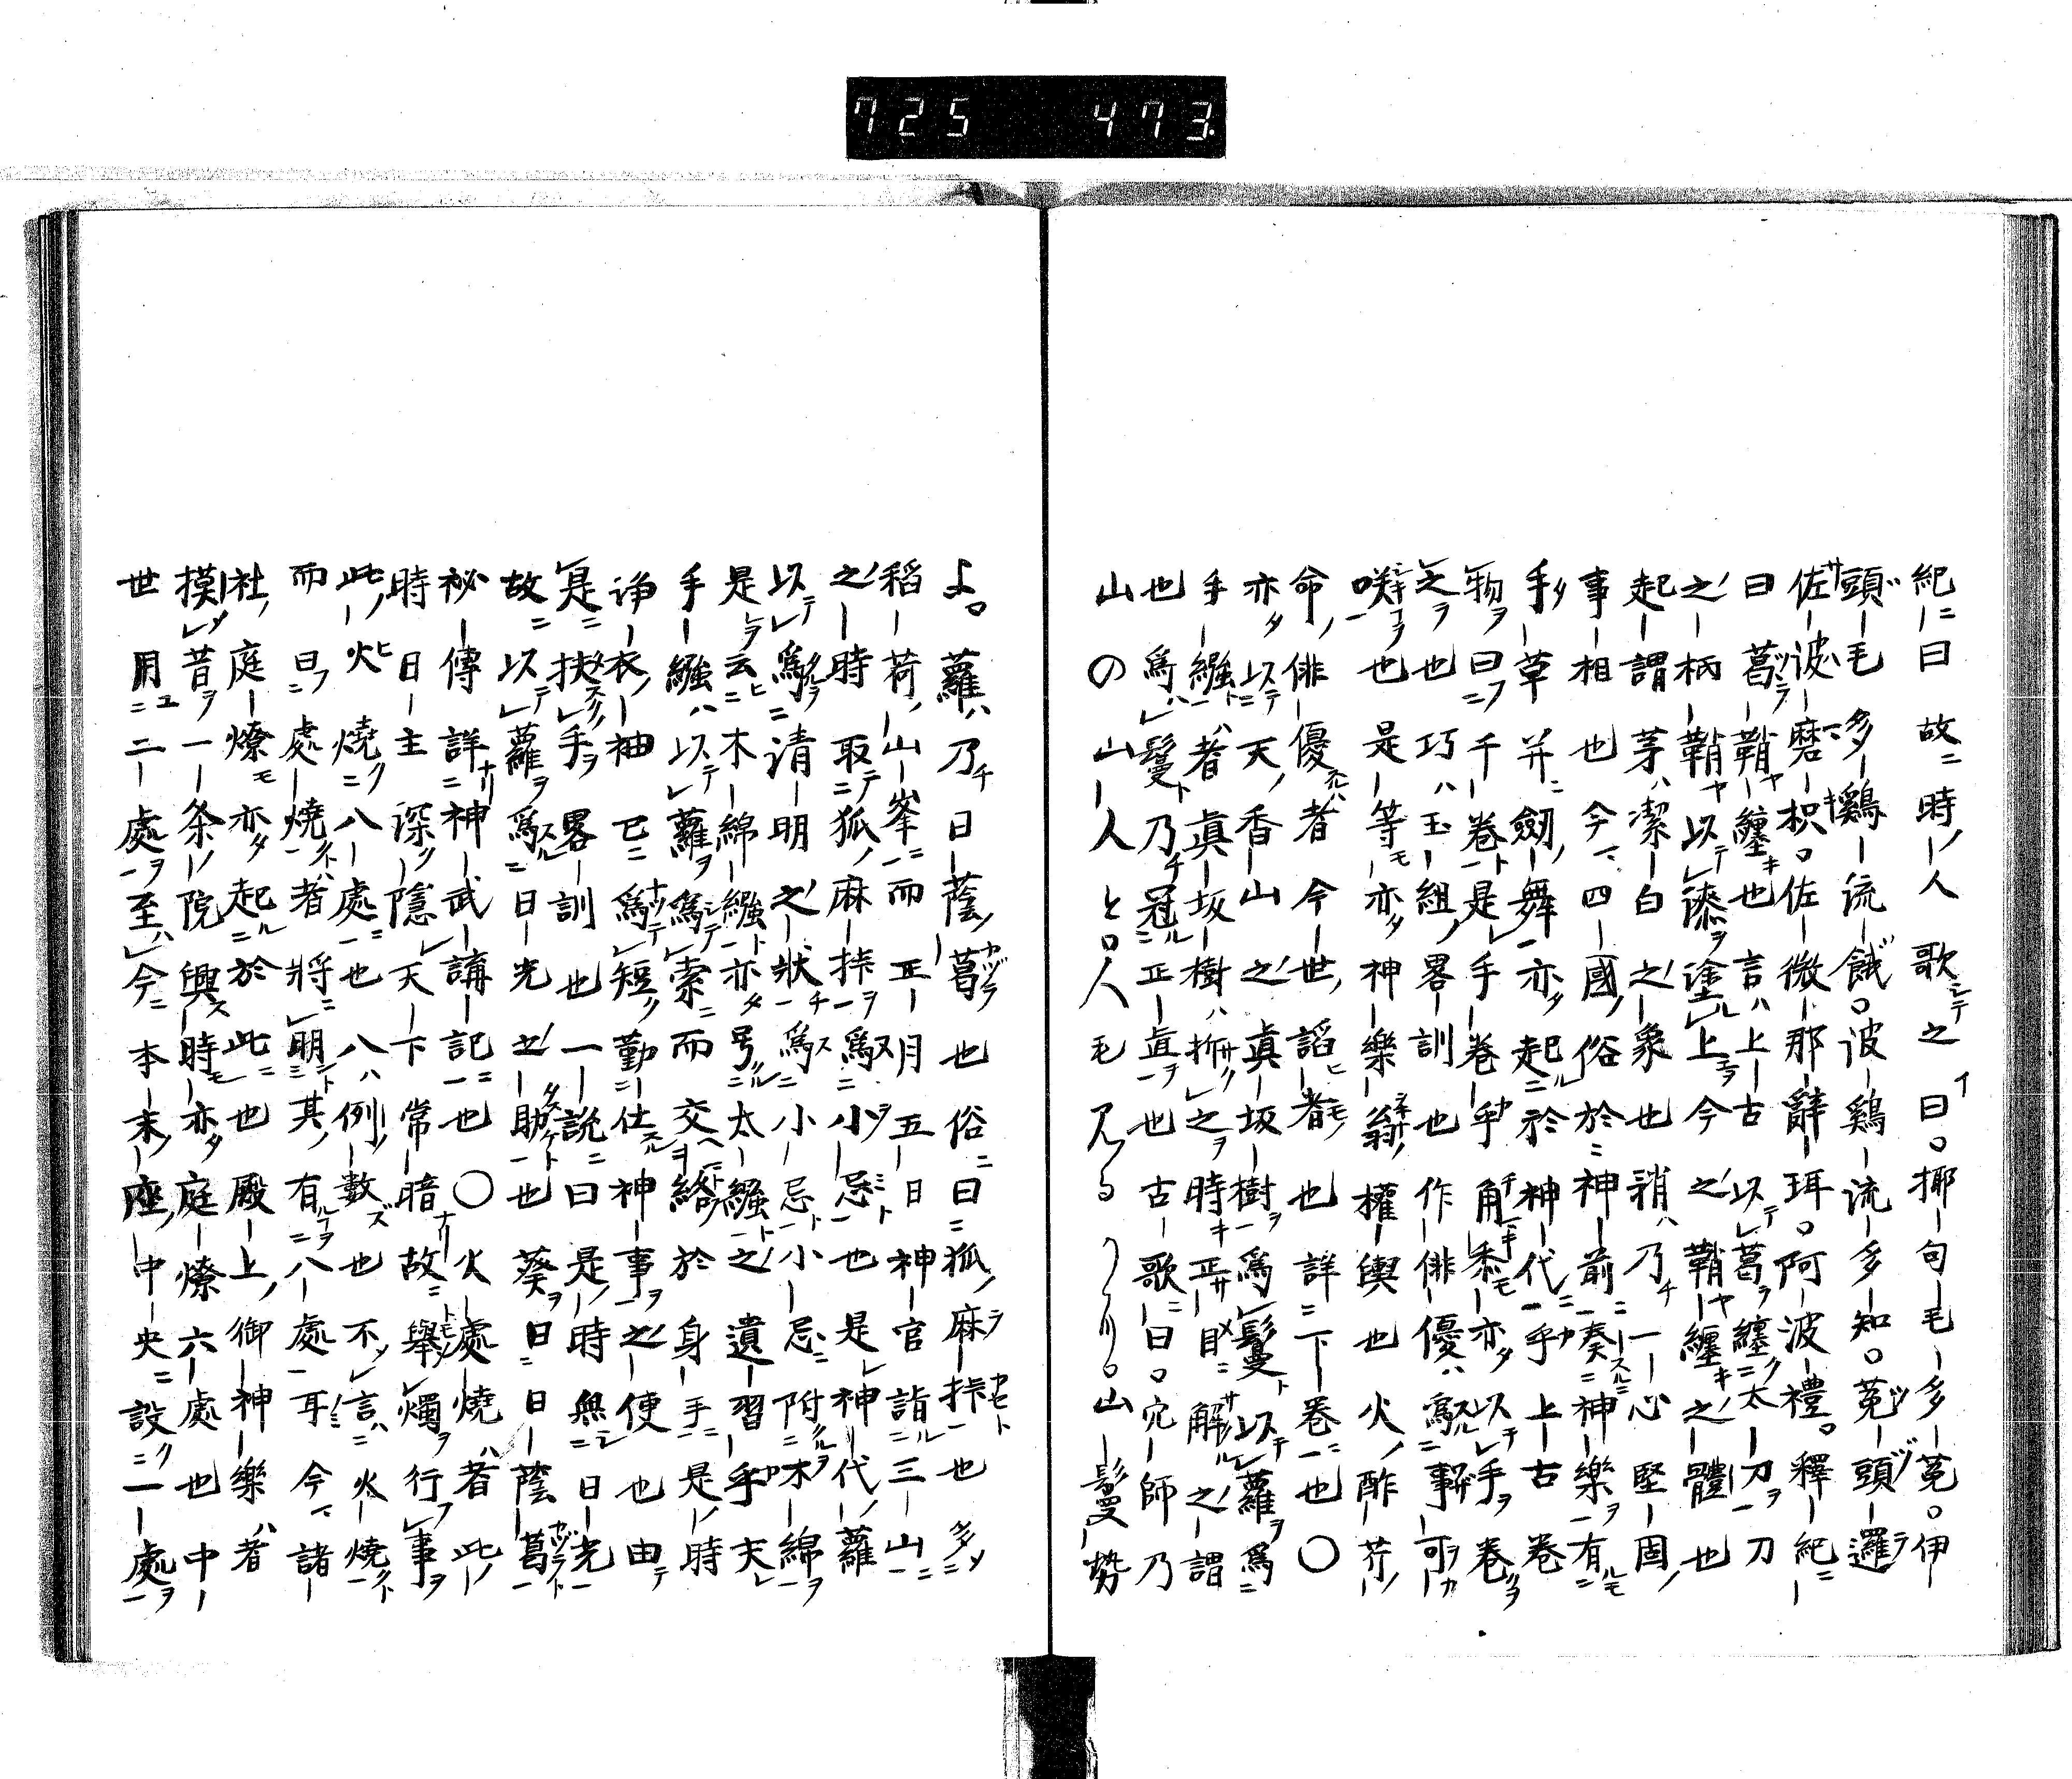 725 473
紀曰故時人歌之曰。揶句毛多菟。伊
頭毛多鷄流餓。波鷄流多知。菟頭邏
佐波磨枳。佐微那辭珥。阿波禮。釋紀
曰葛鞘纏也言上古以葛纏太刀刀
之柄鞘以漆塗上今之鞘纏之體也
起謂茅潔白之象也稍乃一心堅固
事相也今四國俗於神前奏神樂有
手草并劔舞亦起於神代乎上古卷
物曰千卷是手卷乎角黍亦以手卷
之也巧玉組畧訓也作俳優為事可
咲也是等亦神樂翁權輿也火酢芥
命俳優者今世謟者也詳下卷也〇
亦以天香山之真坂樹為鬘以蘿為
手繦者真坂樹折之時正目解之謂
也為鬘乃冠正直也古歌曰。穴師乃
山の山人と人毛見る。山鬘勢
よ。蘿乃日蔭葛也俗曰狐麻挊也多
稻荷山峯而正月五日神官詣三山
之時取狐麻挊為小忌也是神代蘿
以為清明之狀為小忌小忌附木綿
是云木綿繦亦号太繦之遺習乎夫
手繦以蘿為索而交絡於身手是時
诤衣袖已為短勤仕神事之使也由
是挾手畧訓也一說曰是時無日光
故以蘿為日光之助也葵曰日蔭葛
祕傳詳神武講記也〇火處燒者此
時日主深隱天下常暗故舉燭行事
此火燒八處也八例數也不言火燒
而曰處燒者將明其有八處耳今諸
社庭燎亦起於此也殿上御神樂者
摸昔一条院輿時亦庭燎六處也中
世用二處至今本末座中央設一處